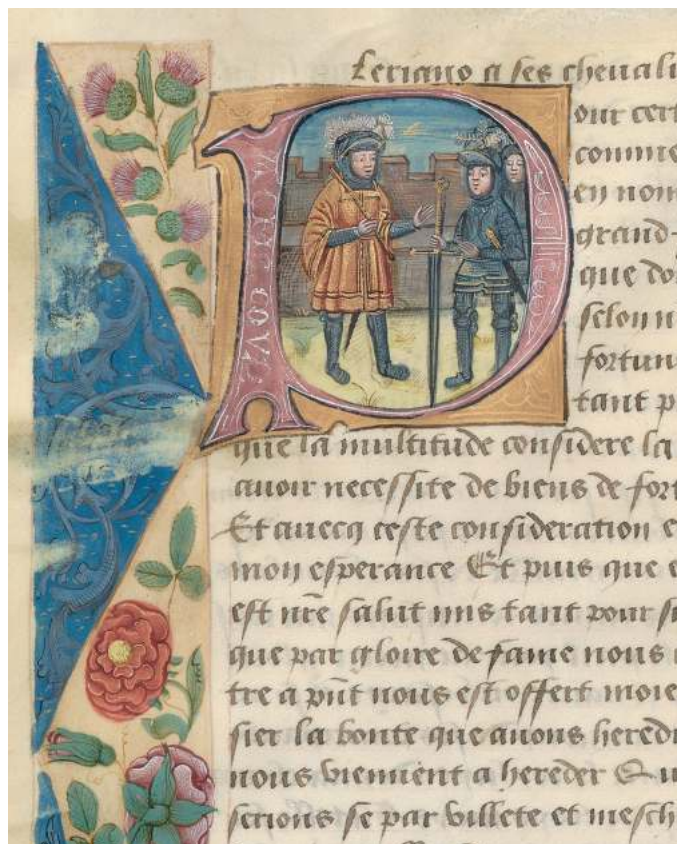 Leriano a ses chevali
Pour cert
comme
en nom
grand
que do
selon n
fortun
tant p
que la multitude considere la
avoir necessite de biens de fort
Et avecq ceste consideration e
mon esperance Et puis que e
est nr̃e salut mis tant pour s
que par gloire de fame nous
tre a pñt nous est offert moie
sier la bonte que avons heredi
nous viennent a hereder Qu
serions se par villete et mesch